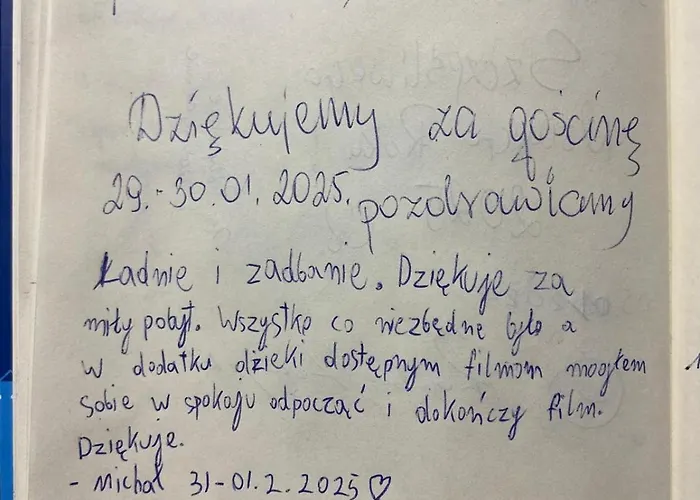 Dziękujemy za gościnę
29.-30.01.2025. pozdrawiamy
Ładnie i zadbanie. Dziękuje za
miły pobyt. Wszystko co niezbędne było a
w dodatku dzieki dostępnym filmom mogłem
sobie w spokoju odpocząć i dokończy film.
Dziękuje.
- Michał 31-01.2.2025♡